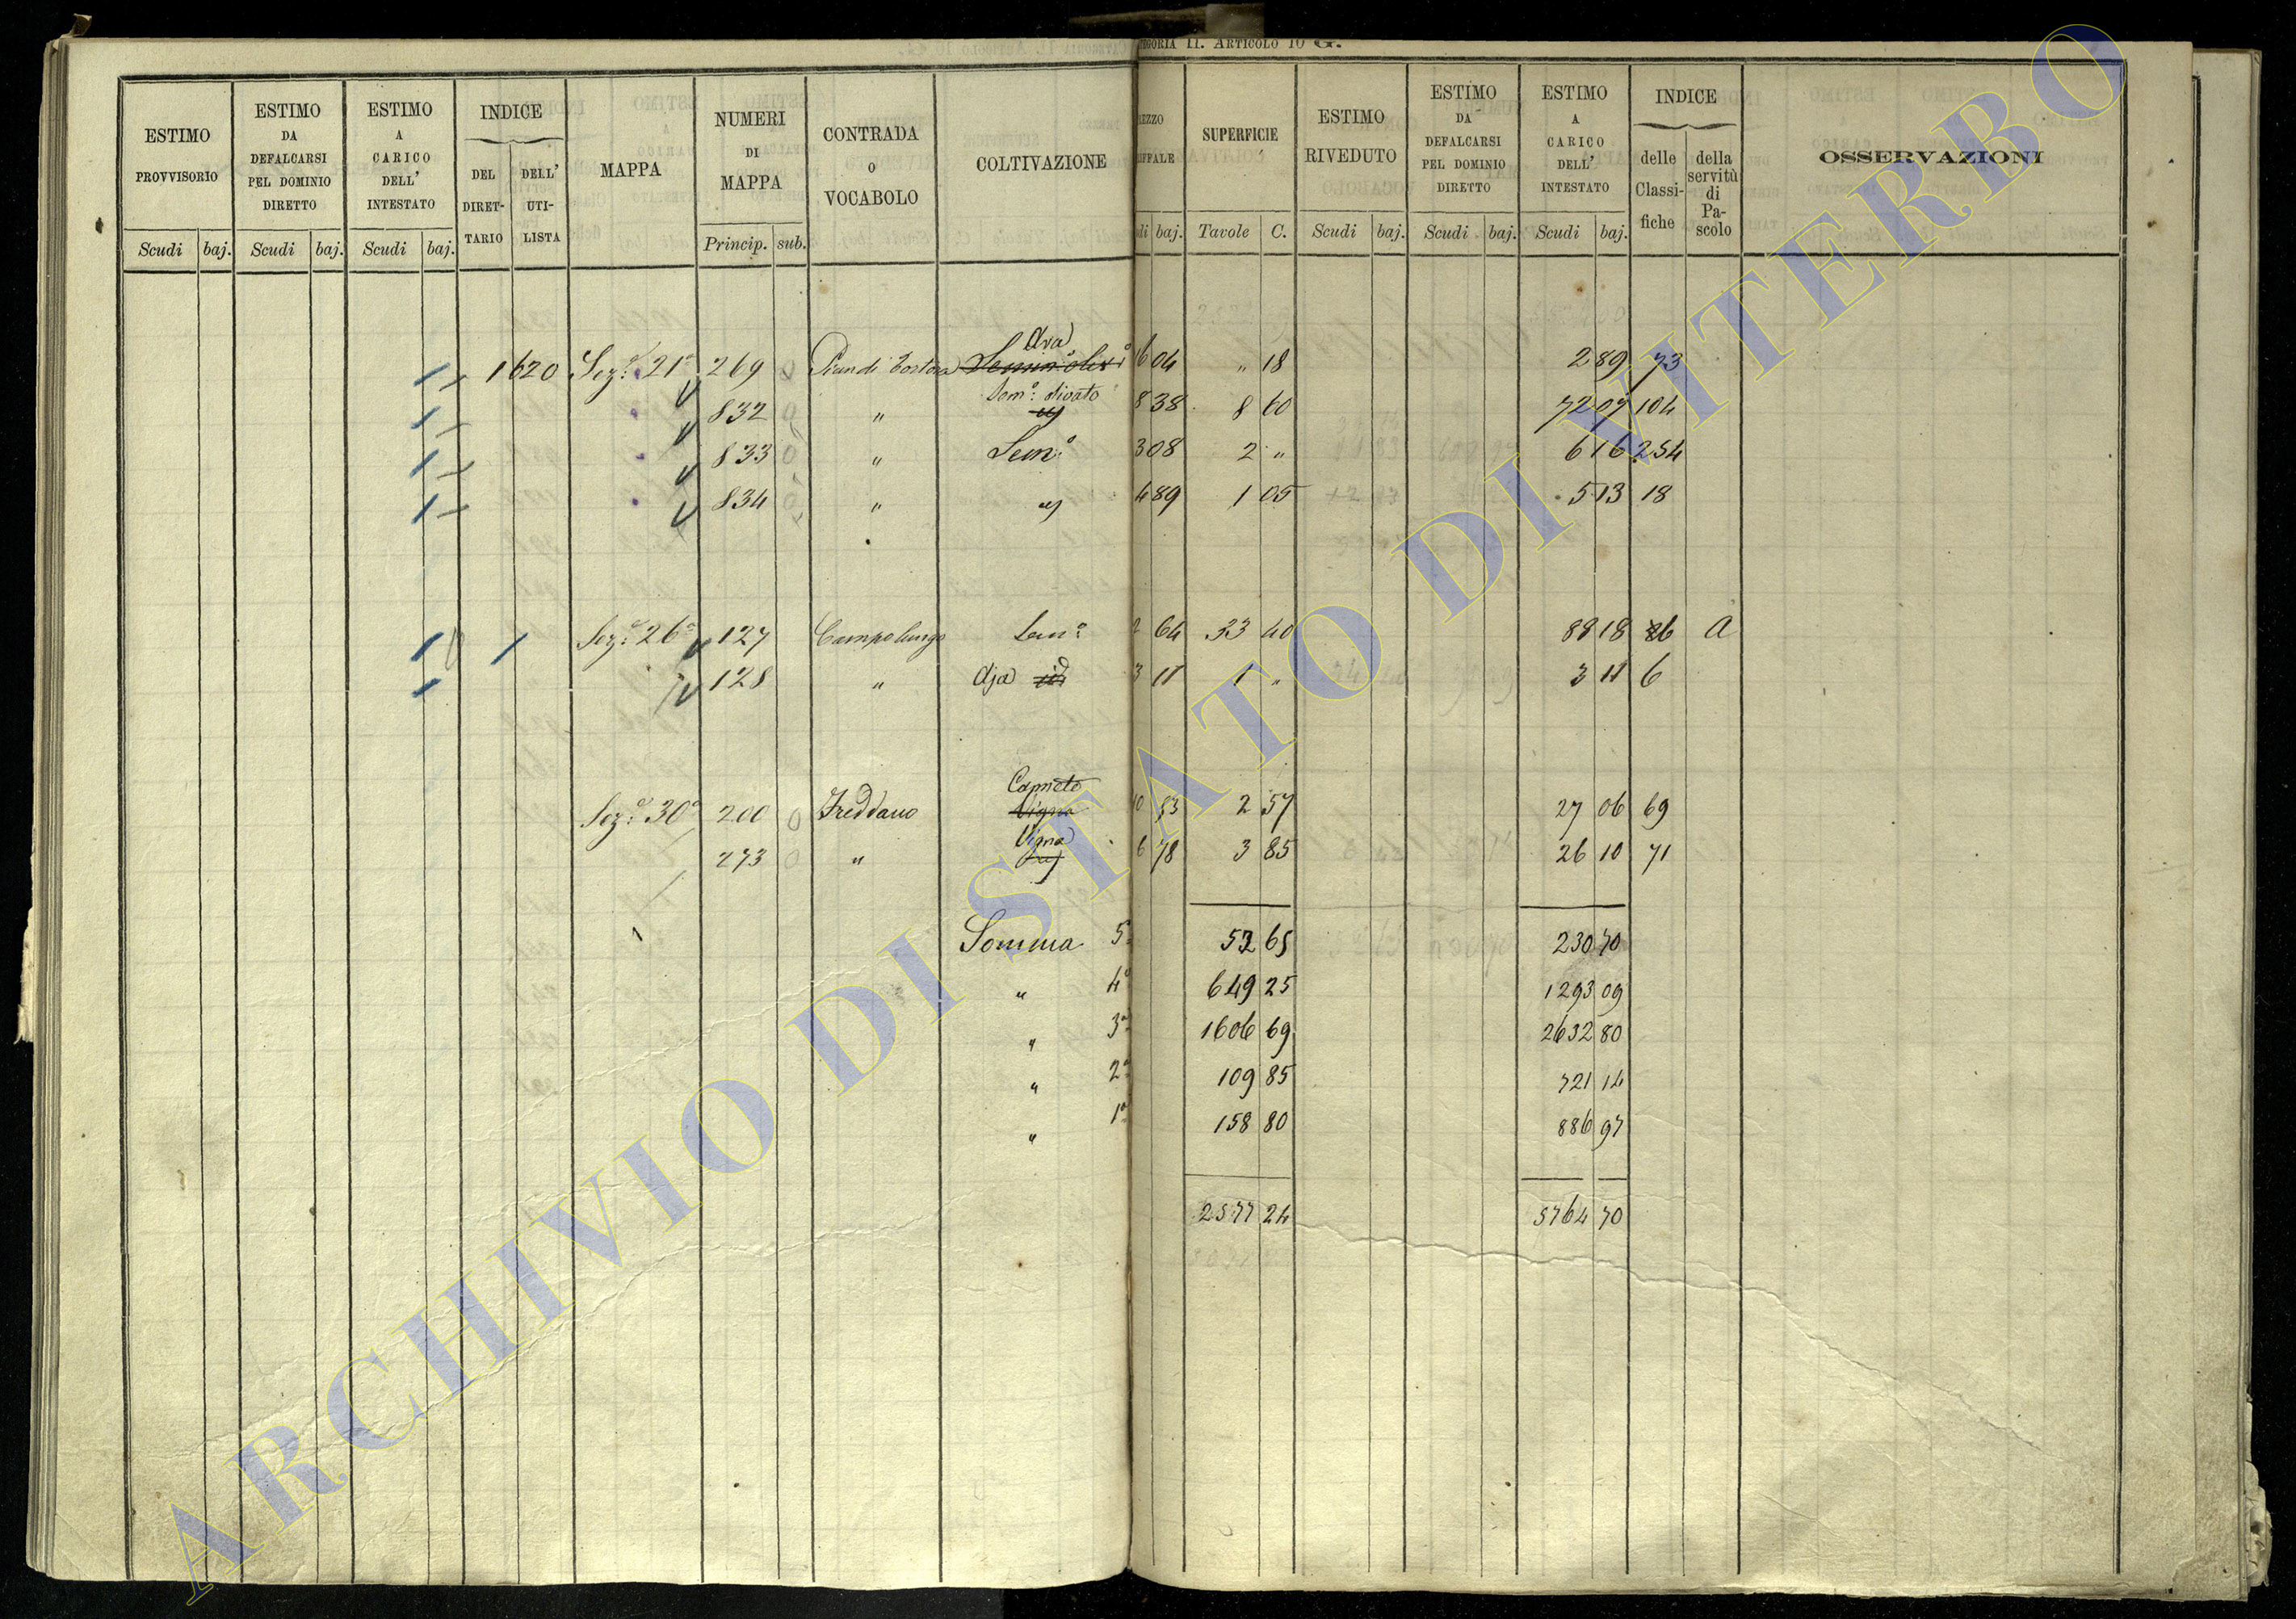 EGORIA II. ARTICOLO 10 G.
ESTIMO PROVVISORIO
Scudi baj.
ESTIMO DA DEFALCARSI PEL DOMINIO DIRETTO
Scudi baj.
ESTIMO A CARICO DELL' INTESTATO
Scudi baj.
INDICE
DEL DIRET-TARIO
DELL' UTI-LISTA
MAPPA
NUMERI DI MAPPA
Princip. sub.
CONTRADA o VOCABOLO
COLTIVAZIONE
EZZO
IFFALE
di baj.
SUPERFICIE
Tavole C.
ESTIMO RIVEDUTO
Scudi baj.
ESTIMO DA DEFALCARSI PEL DOMINIO DIRETTO
Scudi baj.
ESTIMO A CARICO DELL' INTESTATO
Scudi baj.
INDICE
delle Classi-fiche
della servitù di Pa-scolo
OSSERVAZIONI
1620 Sez.e 21a 269 0 Pian di Tortora 6 04 " 18 2 89 73
832 0 " Sem.o olivato 8 38 8 60 72 07 104
833 0 " Sem.o 3 08 2 " 6 16 254
834 0 " 4 89 1 05 5 13 18
Sez.e 26a 127 Campolungo Sem.o 2 64 33 40 88 18 86 A
128 " Aja id 3 11 1 " 3 11 6
Capneto
Sez.e 30a 200 0 Freddano Vigna 10 53 2 57 27 06 69
Vigna
273 0 " 6 78 3 85 26 10 71
Somma 5a 52 65 230 70
" 4a 649 25 1293 09
" 3a 1606 69 2632 80
" 2a 109 85 721 14
" 1a 158 80 886 97
2577 24 5764 70
ARCHIVIO DI STATO DI VITERBO